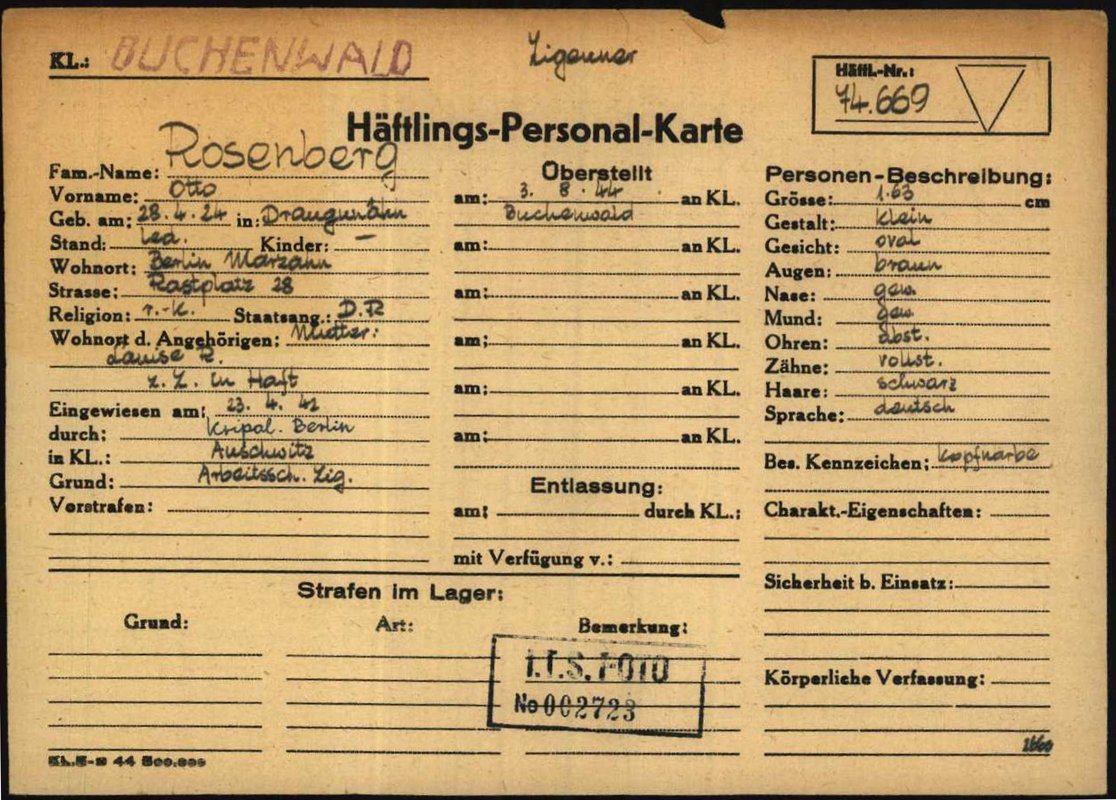 KL.: BUCHENWALD
Zigeuner
Häftl.-Nr.:
74.669
Häftlings-Personal-Karte
Fam.-Name: Rosenberg
Vorname: Otto
Geb. am: 28.4.24 in: Draugupönen
Stand: led. Kinder: —
Wohnort: Berlin Marzahn
Strasse: Rastplatz 28
Religion: r.-k. Staatsang.: D.R
Wohnort d. Angehörigen: Mutter:
Louise R.
z. Z. in Haft
Eingewiesen am: 23. 4. 42
durch: Kripol. Berlin
in KL.: Auschwitz
Grund: Arbeitssch. Zig.
Vorstrafen:
Überstellt
am: 3. 8. 44 an KL.
Buchenwald
am: an KL.
am: an KL.
am: an KL.
am: an KL.
am: an KL.
Entlassung:
am: durch KL.:
mit Verfügung v.:
Personen-Beschreibung:
Grösse: 1.63 cm
Gestalt: klein
Gesicht: oval
Augen: braun
Nase: gew.
Mund: gew.
Ohren: abst.
Zähne: vollst.
Haare: schwarz
Sprache: deutsch
Bes. Kennzeichen: Kopfnarbe
Charakt.-Eigenschaften:
Sicherheit b. Einsatz:
Körperliche Verfassung:
Strafen im Lager:
Grund: Art: Bemerkung:
I.T.S. FOTO
No 002723
44 500.000